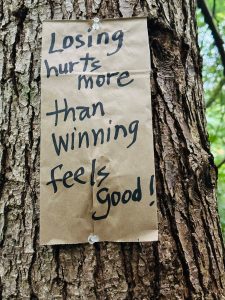 Losing
hurts
more
than
winning
feels
good!